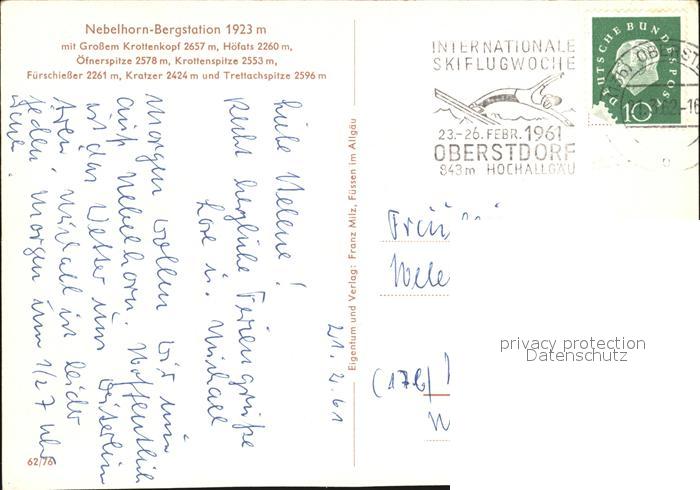 Nebelhorn-Bergstation 1923 m
mit Großem Krottenkopf 2657 m, Höfats 2260 m,
Öfnerspitze 2578 m, Krottenspitze 2553 m,
Fürschießer 2261 m, Kratzer 2424 m und Trettachspitze 2596 m
INTERNATIONALE
SKIFLUGWOCHE
23.-26. FEBR. 1961
OBERSTDORF
843m HOCHALLGÄU
DEUTSCHE BUNDESPOST
10
OBERSTD
21.2.61
Liebe Helene!
Recht herzliche Feriengrüße
Michael
Morgen wollen wir
aufs Nebelhorn. Hoffentlich
ist das Wetter
Michael ist leider
jeden Morgen um 1/2 7 Uhr
Eigentum und Verlag: Franz Milz, Füssen im Allgäu
(17b)
privacy protection
Datenschutz
62/76